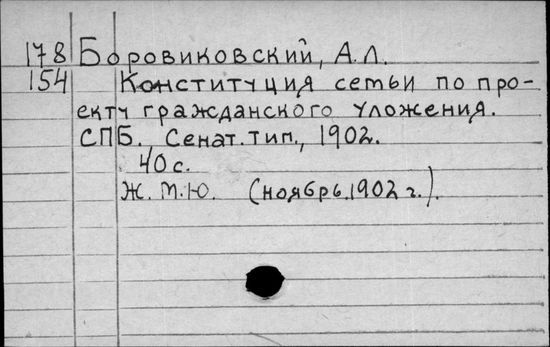 178 Боровиковский, А.Л.
154 Конституция семьи по про-
екту гражданского уложения.
СПБ., Сенат.тип., 1902.
40 с.
Ж.М.Ю. (ноябрь.1902 г.).